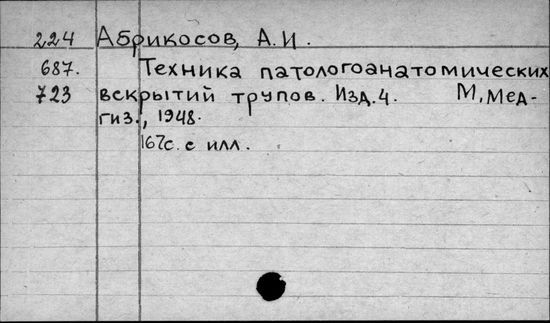 224 Абрикосов, А.И.
687. Техника патологоанатомических
723 вскрытий трупов. Изд.4. М, Мед-
гиз., 1948.
167с. с илл.